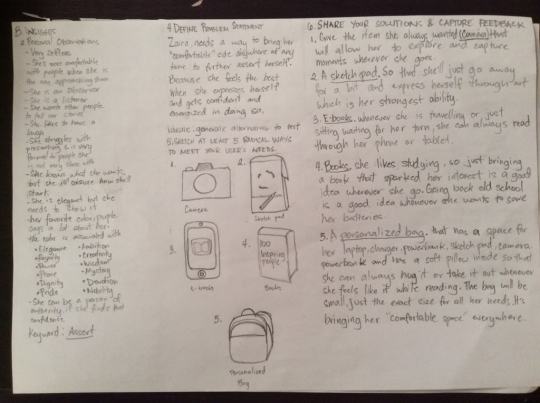 3. INSIGHTS
Personal Observations
- Very Selfless
- She's more comfortable
with people when she is
the one approaching them
- She is an Observer
- She is a listener
- She wants other people
to
- She likes to have a
laugh
- She struggles with
presenting & is very
formal to people she
is not very close with
- She knows what she wants
but she is unsure how she'll
start.
- She is elegant but she
needs to show it
- her favorite color, purple
says a lot about her.
the color is associated with
• Elegance • Ambition
• Royalty • Creativity
• Power • Wisdom
• Mystery
• Dignity • Devotion
• Pride • Nobility
- She can be a person of
authority if she finds that
confidence.
Keyword: Assert
4. DEFINE PROBLEM STATEMENT
Zaira needs a way to bring her
"comfortable" anywhere at any
time to further assert herself.
Because she feels the best
when she expresses herself
and gets confident and
energized in doing so.
Ideate: generate alternatives to test
5. SKETCH AT LEAST 5 RADICAL WAYS
TO MEET YOUR USER'S NEEDS.
1.
Camera
2.
Sketch pad
3.
E-books
4.
100
people
Books
5.
Personalized
Bag
6. SHARE YOUR SOLUTIONS & CAPTURE FEEDBACK
1. Give the item she always wanted (Camera) that
will allow her to explore and capture
moments wherever she goes.
2. A sketch pad. So that she'll just go away
for a bit and express herself through art
which is her strongest ability.
3. E-books. whenever she is travelling or just
sitting waiting for her turn, she can always read
through her phone or tablet.
4. Books. she likes studying, so just bringing
a book that sparked her interest is a good
idea wherever she go. Going back old school
is a good idea whenever she wants to save
her batteries.
5. A personalized bag. that has a space for
her laptop, charger, powerbank, sketch pad, camera,
powerbank and has a soft pillow inside so that
she can always hug it or take it out whenever
she feels like it while reading. The bag will be
small, just the exact size for all her needs. It's
bringing her "comfortable space" everywhere.